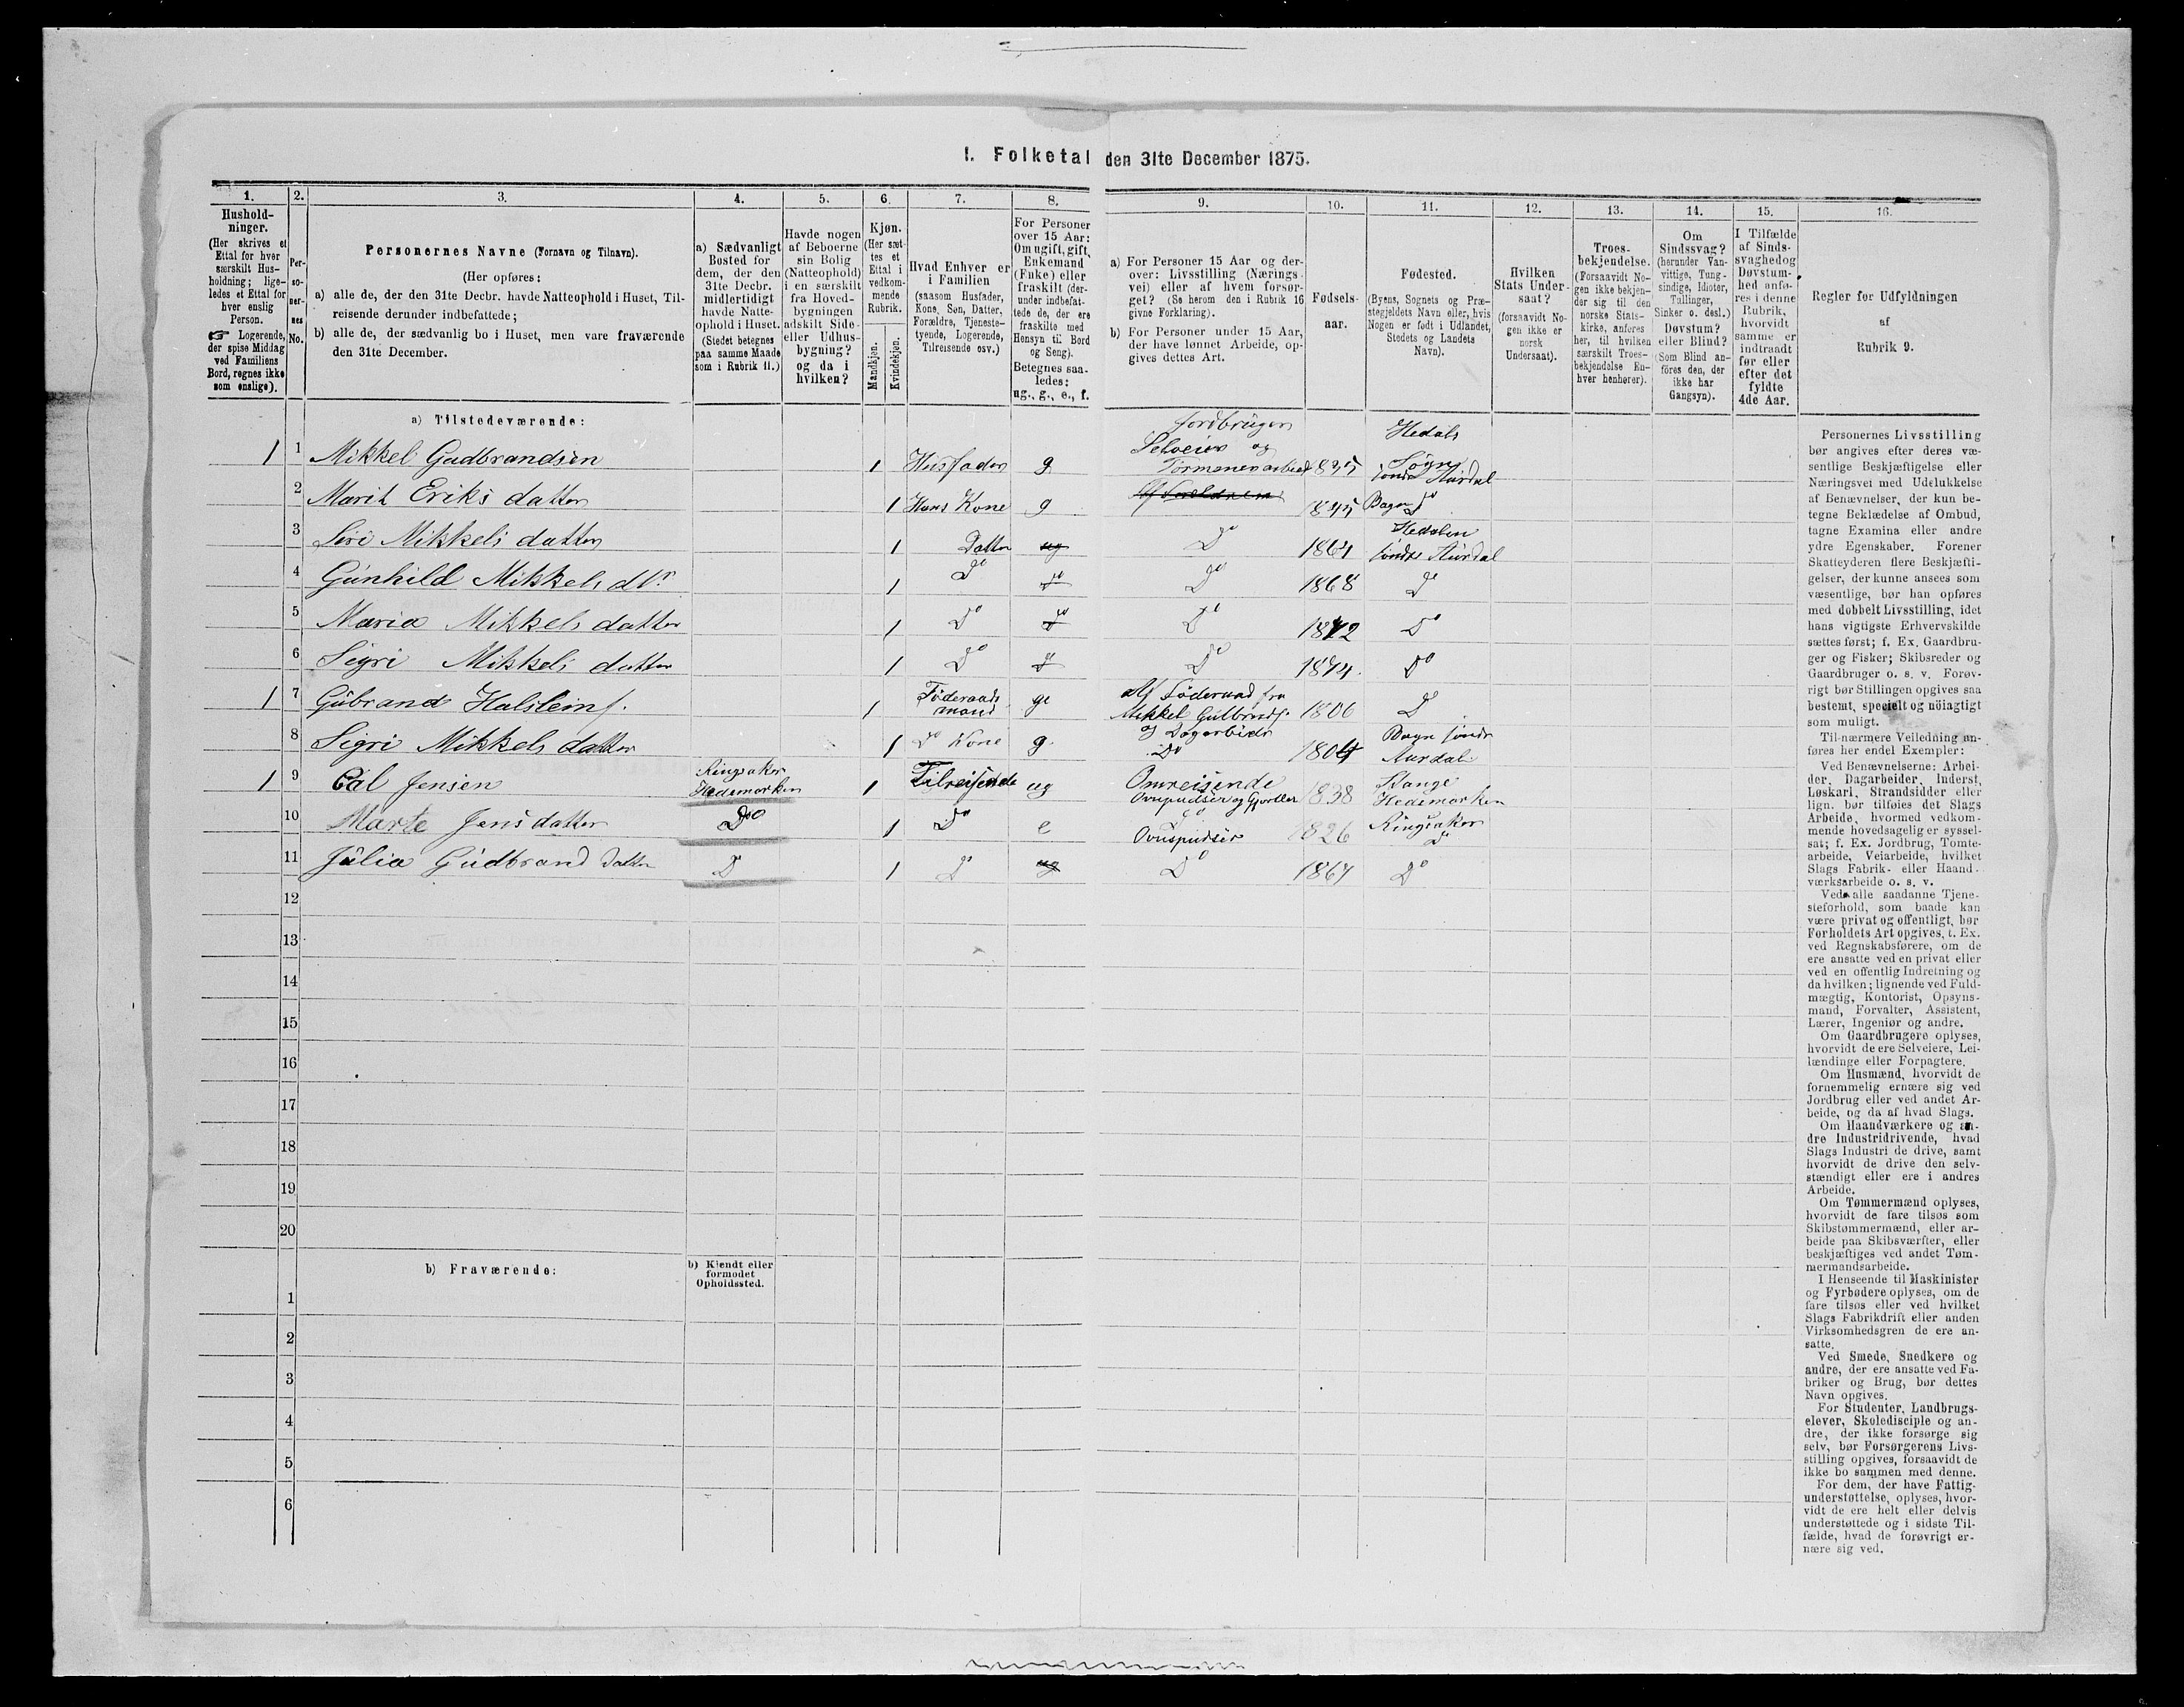 I. Folketal den 31te December 1875.
1. 2. 3. 4. 5. 6. 7. 8. 9. 10. 11. 12. 13. 14. 15. 16.
Hushold-
ninger.
(Her skrives et
Ettal for hver
særskilt Hus-
holdning; lige-
ledes et Ettal for
hver enslig
Person.
☞ Logerende,
der spise Middag
ved Familiens
Bord, regnes ikke
som enslige).
Per-
so-
ner-
nes
No.
Personernes Navne (Fornavn og Tilnavn).
(Her opføres:
a) alle de, der den 31te Decbr. havde Natteophold i Huset, Til-
reisende derunder indbefattede;
b) alle de, der sædvanlig bo i Huset, men vare fraværende
den 31te December.
a) Sædvanligt
Bosted for
dem, der den
31te Decbr.
midlertidigt
havde Natte-
ophold i Huset.
(Stedet betegnes
paa samme Maade
som i Rubrik 11.)
Havde nogen
af Beboerne
sin Bolig
(Natteophold)
i en særskilt
fra Hoved-
bygningen
adskilt Side-
eller Udhus-
bygning?
og da i
hvilken?
Kjøn.
(Her sæt-
tes et
Ettal i
vedkom-
mende
Rubrik.
Mandkjøn.
Kvindekjøn.
Hvad Enhver er
i Familien
(saasom Husfader,
Kone, Søn, Datter,
Forældre, Tjeneste-
tyende, Logerende,
Tilreisende osv.)
For Personer
over 15 Aar:
Om ugift, gift,
Enkemand
(Enke) eller
fraskilt (der-
under indbefat-
tede de, der ere
fraskilte med
Hensyn til Bord
og Seng).
Betegnes saa-
ledes:
ug., g., e., f.
a) For Personer 15 Aar og der-
over: Livsstilling (Nærings-
vei) eller af hvem forsør-
get? (Se herom den i Rubrik 16
givne Forklaring).
b) For Personer under 15 Aar,
der have lønnet Arbeide, op-
gives dettes Art.
Fødsels-
aar.
Fødested.
(Byens, Sognets og Præ-
stegjeldets Navn eller, hvis
Nogen er født i Udlandet,
Stedets og Landets
Navn).
Hvilken
Stats Under-
saat?
(forsaavidt No-
gen ikke er
norsk
Undersaat).
Troes-
bekjendelse.
(Forsaavidt No-
gen ikke bekjen-
der sig til den
norske Stats-
kirke, anføres
her, til hvilken
særskilt Troes-
bekjendelse En-
hver henhører).
Om
Sindssvag?
(herunder Van-
vittige, Tung-
sindige, Idioter,
Tullinger,
Sinker o. desl.)
Døvstum?
eller Blind?
(Som Blind an-
føres den, der
ikke har
Gangsyn).
I Tilfælde
af Sinds-
svaghed og
Døvstum-
hed anfø-
res i denne
Rubrik,
hvorvidt
samme er
indtraadt
før eller
efter det
fyldte
4de Aar.
Regler for Udfyldningen
af
Rubrik 9.
a) Tilstedeværende:
1 1 Mikkel Gudbrandsen 1 Husfader g Jordbruger Selveier og Tømmerarbeid Hedals Sogn søndr Aurdal
2 Marit Eriks datter 1 Hans Kone g 1845 Bagn Do
3 Siri Mikkels datter 1 Datter ug Do 1864 Hedalen søndre Aurdal
4 Gunhild Mikkels dtr 1 Do Do Do 1868 Do
5 Maria Mikkels datter 1 Do Do Do 1872 Do
6 Sigri Mikkels datter 1 Do Do Do 1874. Do
1 7 Gübrand Halsteins. 1 Føderaads mand g Af Føderaad fra Mikkel Gulbrands. 1806 Do
8 Sigri Mikkels datter 1 Do Kone g. og Dagarbeide Do 1804 Bagn søndr Aurdal
1 9 Jensen Ringsaker Hedemarken 1 Tilreisende ug Omreisende Ovnpudser og Gjørtler 1838 Stange Hedemarken
10 Marte Jens datter Do 1 Do e Do Ovnspudser 1826 Ringsaker Do
11 Julia Gudbrand Datter Do 1 Do ug Do 1867 Do
12
13
14
15
16
17
18
19
20
b) Fraværende:
b) Kjendt eller
formodet
Opholdssted.
1
2
3
4
5
6
Personernes Livsstilling
bør angives efter deres væ-
sentlige Beskjæftigelse eller
Næringsvei med Udelukkelse
af Benævnelser, der kun be-
tegne Beklædelse af Ombud,
tagne Examina eller andre
ydre Egenskaber. Forener
Skatteyderen flere Beskjæfti-
gelser, der kunne ansees som
væsentlige, bør han opføres
med dobbelt Livsstilling, idet
hans vigtigste Erhvervskilde
sættes først; f. Ex. Gaardbru-
ger og Fisker; Skibsreder og
Gaardbruger o. s. v. Forøv-
rigt bør Stillingen opgives saa
bestemt, specielt og nöiagtigt
som muligt.
Til nærmere Veiledning an-
føres her endel Exempler:
Ved Benævnelserne: Arbei-
der, Dagarbeider, Inderst,
Løskarl, Strandsidder eller
lign. bør tilføies det Slags
Arbeide, hvormed vedkom-
mende hovedsagelig er syssel-
sat; f. Ex. Jordbrug, Tomte-
arbeide, Veiarbeide, hvilket
Slags Fabrik- eller Haand-
værksarbeide o. s. v.
Ved alle saadanne Tjene-
steforhold, som baade kan
være privat og offentligt, bør
Forholdets Art opgives, t. Ex.
ved Regnskabsførere, om de
ere ansatte ved en privat eller
ved en offentlig Indretning og
da hvilken; lignende ved Fuld-
mægtig, Kontorist, Opsyns-
mand, Forvalter, Assistent,
Lærer, Ingeniør og andre.
Om Gaardbrugere oplyses,
hvorvidt de ere Selveiere, Lei-
lændinge eller Forpagtere.
Om Husmænd, hvorvidt de
fornemmelig ernære sig ved
Jordbrug eller ved andet Ar-
beide, og da af hvad Slags.
Om Haandværkere og an-
dre Industridrivende, hvad
Slags Industri de drive, samt
hvorvidt de drive den selv-
stændigt eller ere i andres
Arbeide.
Om Tømmermænd oplyses,
hvorvidt de fare tilsøs som
Skibstømmermænd, eller ar-
beide paa Skibsværfter, eller
beskjæftiges ved andet Tøm-
mermandsarbeide.
I Henseende til Maskinister
og Fyrbødere oplyses, om de
fare tilsøs eller ved hvilket
Slags Fabrikdrift eller anden
Virksomhedsgren de ere an-
satte.
Ved Smede, Snedkere og
andre, der ere ansatte ved Fa-
briker og Brug, bør dettes
Navn opgives.
For Studenter, Landbrugs-
elever, Skoledisciple og an-
dre, der ikke forsørge sig
selv, bør Forsørgerens Livs-
stilling opgives, forsaavidt de
ikke bo sammen med denne.
For dem, der have Fattig-
understøttelse, oplyses, hvor-
vidt de ere helt eller delvis
understøttede og i sidste Til-
fælde, hvad de forøvrigt er-
nære sig ved.